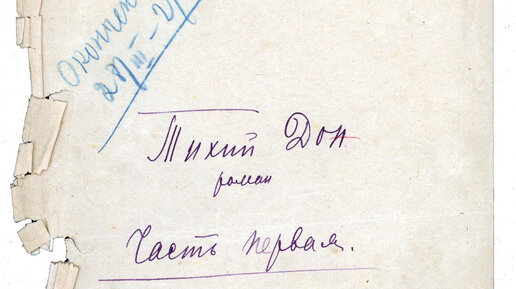 Окончен
28/III – 2
Тихий Дон
роман
Часть первая.